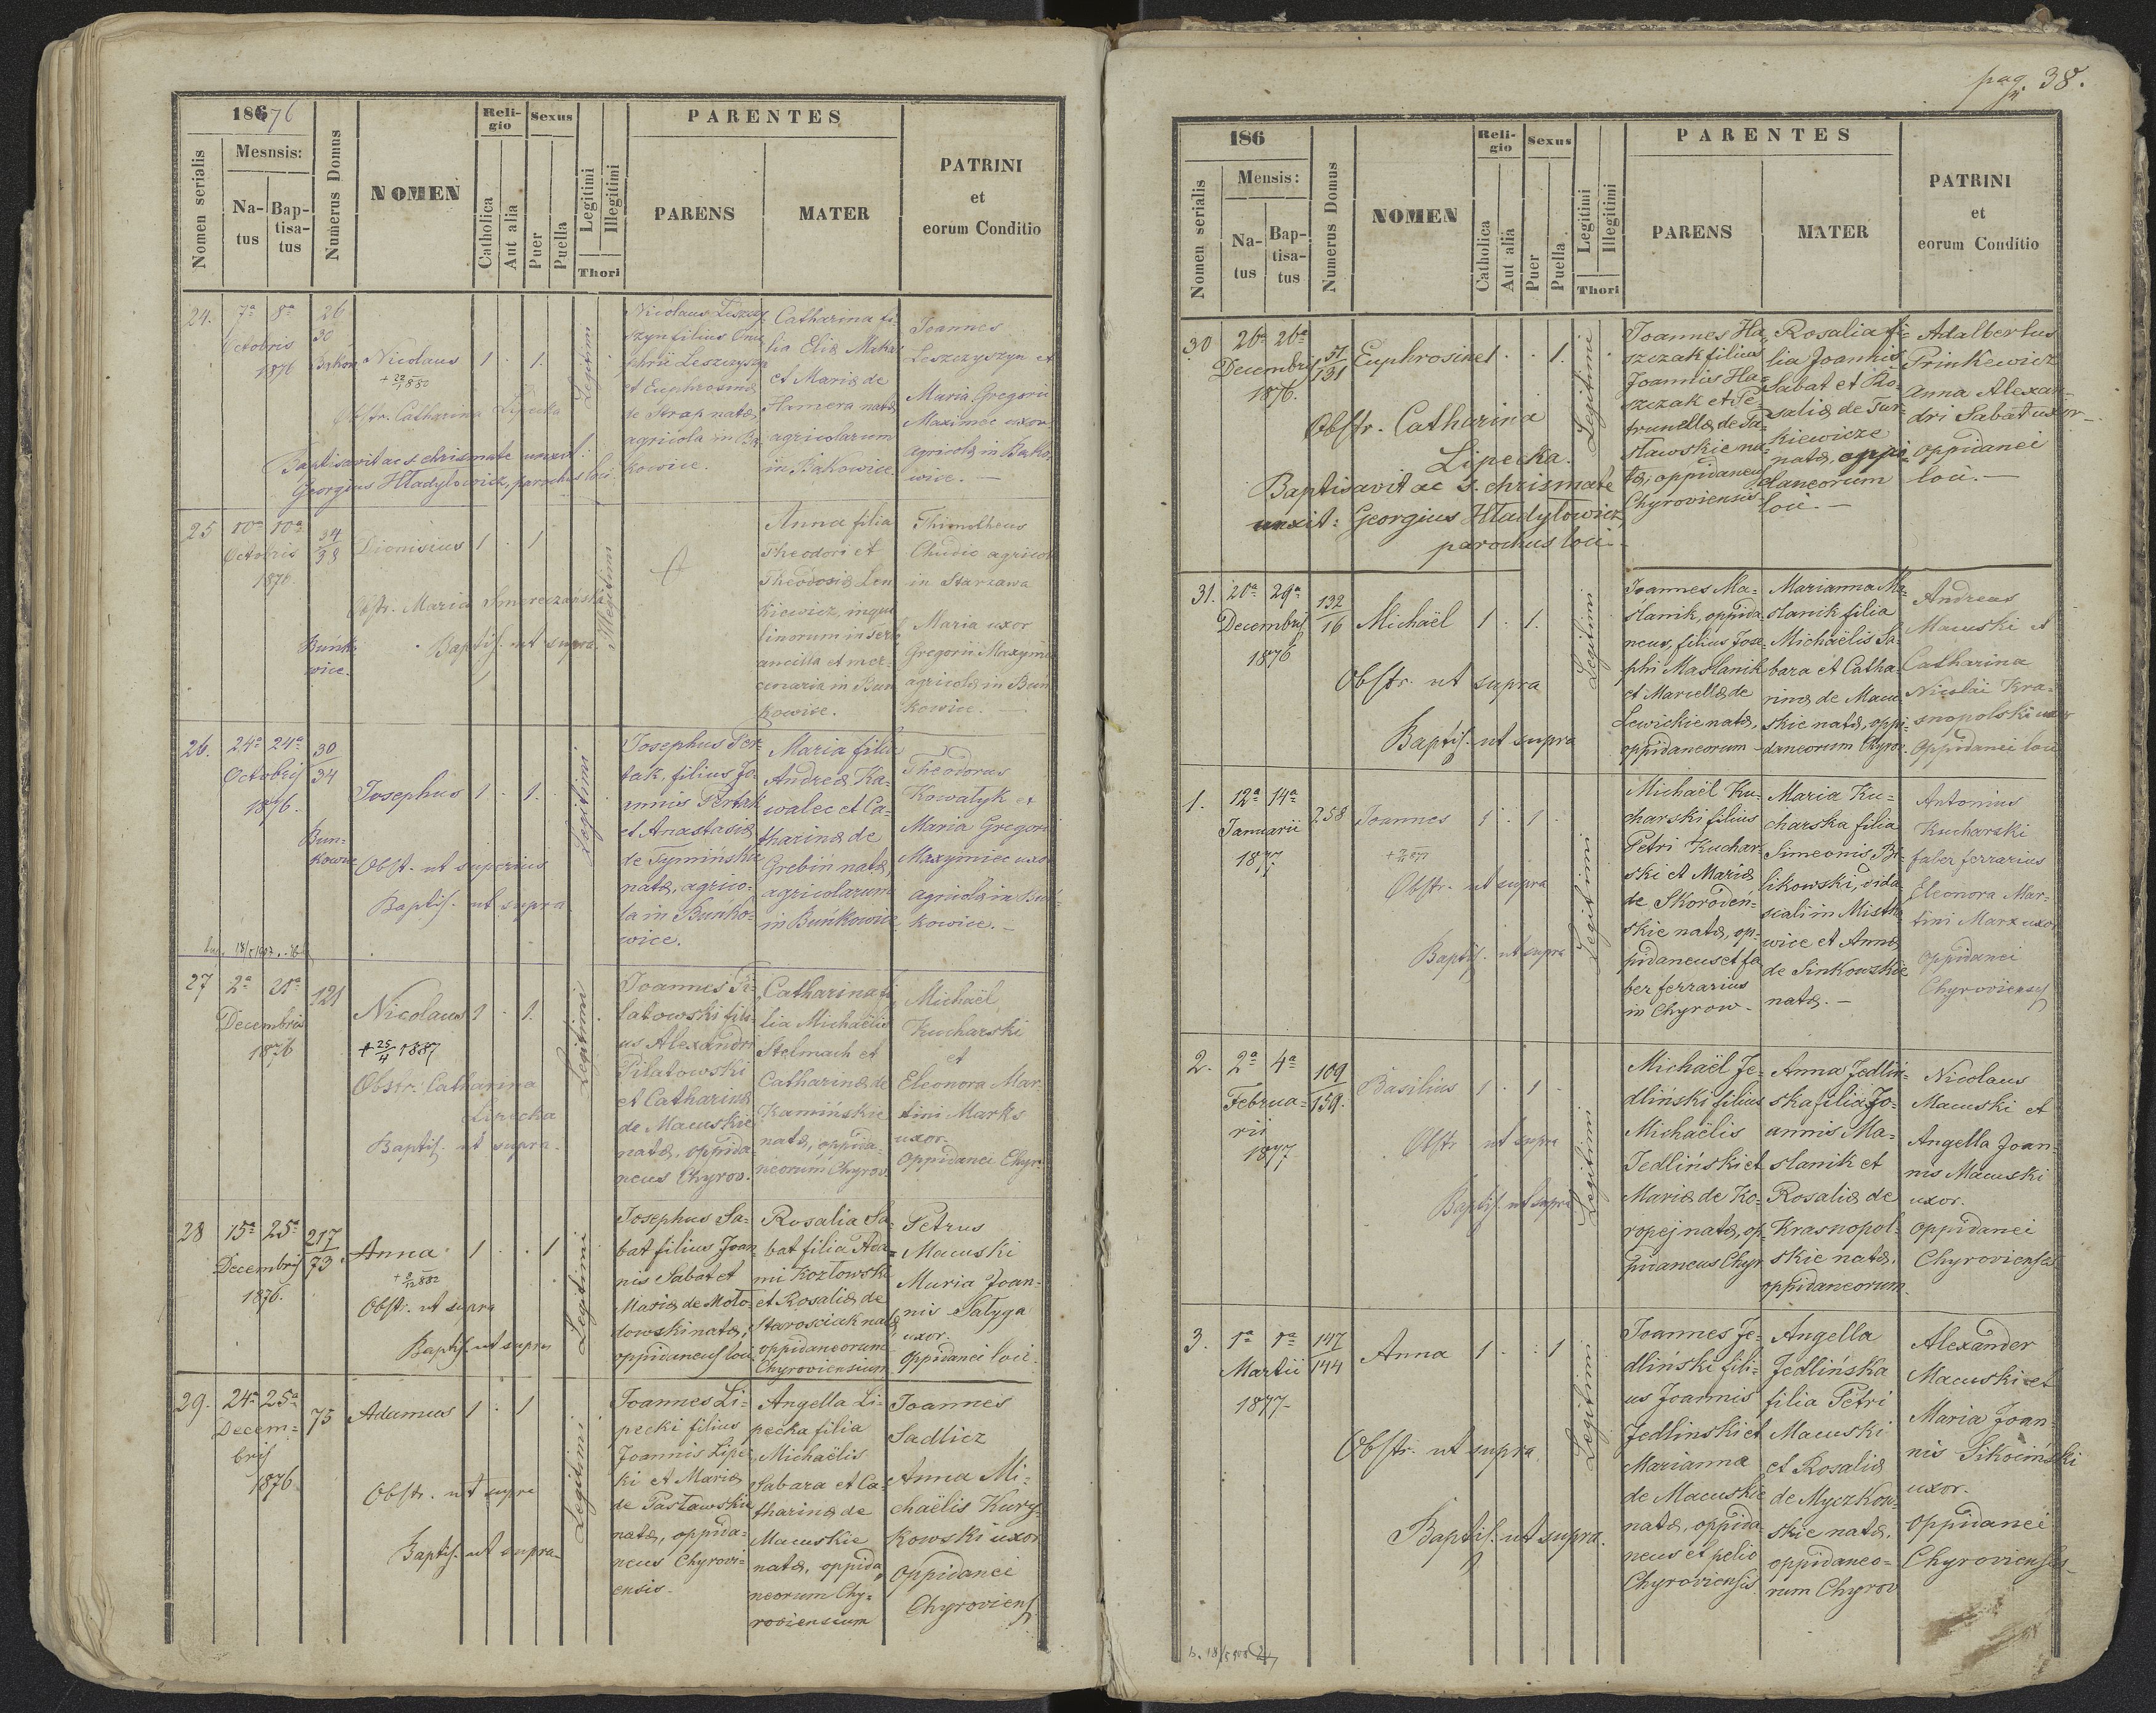 18676
Nomen serialis
Mesnsis:
Na-
tus
Bap-
tisa-
tus
Numerus Domus
NOMEN
Reli-
gio
Catholica
Aut alia
Sexus
Puer
Puella
Legitimi
Illegitimi
Thori
PARENTES
PARENS
MATER
PATRINI
et
eorum Conditio
24.
7ª 8ª
Octobris
1876
26
30
Nicolaus 1 . 1.
Obstr. Catharina Lipecka
Baptisavit ac s. chrismate unxit:
Georgius Hładyłowicz, parochus loci
Legitimi
Nicolaus Leszczy-
szyn filius Onu
phrii Leszczyszyn
et Euphrosinæ
de Strap natæ
agricola in Bą
kowice.
Catharina fi-
lia Eliæ Makar
et Mariæ de
Hamera natæ
agricolarum
in Bąkowice
Joannes
Leszczyszyn et
Maria Gregorii
Maximec uxor
agricolæ in Bąko-
wice. —
25
10ª 10ª
Octobris
1876.
34
38
Dionisius 1 . 1
Obstr. Maria Smereczańska
Buńko
wice.
Baptis. ut supra.
Illegitimi
Anna filia
Theodori et
Theodosiæ Len
kiewicz, inqui
linorum in
ancilla et mer-
cenaria in Buń
kowice.
Thimotheus
Chudio agricola
in Starzawa
Maria uxor
Gregorii Maxymie
agricolæ in Buń
kowice. —
26.
24ª 24ª
Octobris
1876.
30
34
Buń-
kowice
Josephus 1 . 1.
Obst. ut superius
Baptis. ut supra
Legitimi
Josephus Per-
tak, filius Jo-
annis Pertak
et Anastasiæ
de Tymińskie
natæ, agrico-
la in Buńko-
wice.
Maria filia
Andreæ Ka-
walec et Ca-
tharinæ de
Grebin natæ,
agricolarum
in Buńkowice
Theodorus
Kowalyk et
Maria Gregorii
Maxymiec uxor
agricolæ in Buń-
kowice. —
27
2ª 21ª
Decembris
1876
121
Nicolaus 1 . 1.
+ 25/4 1887
Obstr: Catharina
Lipecka
Baptis. ut supra.
Legitimi
Joannes Pi-
latowski fili-
us Alexandri
Pilatowski
et Catharinæ
de Macuskie
natæ, oppida-
neus Chyrov.
Catharina fi
lia Michaëlis
Stelmach et
Catharinæ de
Kamińskie
natæ, oppida-
neorum Chyrov.
Michaël
Kucharski
et
Eleonora Mar-
tini Marks
uxor.
Oppidanei Chyr.
28
15ª 25ª
Decembris
1876.
217
73.
Anna 1 . . 1
Obstr. ut supra
Baptis. ut supra
Legitimi
Josephus Sa-
bat filius Joan
nis Sabat et
Mariæ de Moło-
dowski natæ,
oppidaneus loci
Rosalia Sa-
bat filia Ada-
mi Kozłowski
et Rosaliæ de
Starosciak natæ
oppidaneorum
Chyroviensium
Petrus
Macuski
Maria Joan-
nis Sałyga
uxor.
Oppidanei loci.
29.
24ª 25ª
Decem-
bris
1876
75
Adamus 1 . 1
Obstr. ut supra
Baptis. ut supra
Legitimi
Joannes Li-
pecki filius
Joannis Lipec-
ki et Mariæ
de Pasławskie
natæ, oppida-
neus Chyrovi-
ensis.
Angella Li-
pecka filia
Michaëlis
Sabara et Ca-
tharinæ de
Macuskie
natæ, oppida
neorum Chy-
roviensium
Joannes
Sadlicz
Anna Mi-
chaëlis Kury-
kowski uxor
Oppidanei
Chyroviens.
pag. 38.
186
Nomen serialis
Mensis:
Na-
tus
Bap-
tisa-
tus
Numerus Domus
NOMEN
Reli-
gio
Catholica
Aut alia
Sexus
Puer
Puella
Legitimi
Illegitimi
Thori
PARENTES
PARENS
MATER
PATRINI
et
eorum Conditio
30
26ª 26ª
Decembris
1876.
51
131
Euphrosine 1 . . 1.
Obstr. Catharina
Lipecka.
Baptisavit ac s. chrismate
unxit: Georgius Hładyłowicz
parochus loci.
Legitimi
Joannes Ha-
szczak filius
Joannis Ha-
szczak et Pe-
trunellæ de Pa-
sławskie na-
tæ, oppidaneus
Chyroviensis
Rosalia fi-
lia Joannis
Sabat et Ro-
saliæ de Tur-
kiewicze
natæ, oppi-
daneorum
loci. —
Adalbertus
Prinkewicz
Anna Alexan-
dri Sabat uxor
oppidanei
loci. —
31.
20ª 29ª
Decembris
1876
132
16
Michaël 1 . 1.
Obstr. ut supra
Baptis. ut supra
Legitimi
Joannes Ma-
słanik, oppida
neus, filius Jose
phi Masłanik
et Mariellæ de
Lewickie natæ,
oppidaneorum
Marianna Ma-
słanik filia
Michaëlis Sa-
bara et Catha-
rinæ de Macu
skie natæ, oppi-
daneorum Chyrov.
Andreas
Macuski et
Catharina
Nicolai Kra-
snopolski uxor
Oppidanei loci
1.
12ª 14ª
Januarii
1877
258
Joannes 1 . 1
Obstr. ut supra
Baptis. ut supra
Legitimi
Michaël Ku-
charski filius
Petri Kuchar-
ski et Mariæ
de Skoroden-
skie natæ, op-
pidaneus et fa
ber ferrarius
in Chyrow.
Maria Ku-
charska filia
Simeonis Bi-
likowski, dida
scali in Misty
wice et Annæ
de Sinkowskie
natæ. —
Antonius
Kucharski
faber ferrarius
Eleonora Mar-
tini Marx uxor
Oppidanei
Chyroviensis
2.
2ª 4ª
Februa-
rii
1877
109
159.
Basilius 1 . 1
Obstr. ut supra
Baptis. ut supra
Legitimi
Michaël Je-
dliński filius
Michaëlis
Jedliński et
Mariæ de Ko-
ropej natæ, op-
pidaneus Chyr
Anna Jedliń-
ska filia Jo-
annis Ma-
słanik et
Rosaliæ de
Krasnopol-
skie natæ.
oppidaneorum.
Nicolaus
Macuski et
Angella Joan-
nis Macuski
uxor.
Oppidanei
Chyroviensis
3.
1ª 1ª
Martii
1877
147
144
Anna 1 . . 1
Obstr. ut supra
Baptis. ut supra.
Legitimi
Joannes Je-
dliński fili-
us Joannis
Jedliński et
Marianna
de Macuskie
natæ, oppida-
neus et pelio
Chyroviensis
Angella
Jedlińska
filia Petri
Macuski
et Rosaliæ
de Myczkow-
skie natæ.
oppidaneo-
rum Chyrov
Alexander
Macuski et
Maria Joan-
nis Sikociński
uxor.
Oppidanei
Chyroviensis